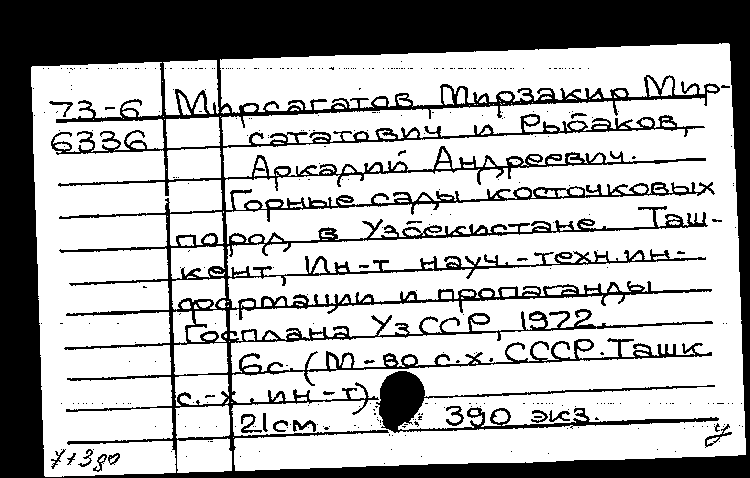 73-6 Мирсагатов, Мирзакир Мир-
6336 сагатович и Рыбаков,
Аркадий Андреевич.
Горные сады косточковых
пород в Узбекистане. Таш-
кент, Ин-т науч.-техн. ин-
формации и пропаганды
Госплана УзССР, 1972.
6с. (М-во с.х. СССР. Ташк.
с.-х. ин-т)
21см. 390 экз.
у